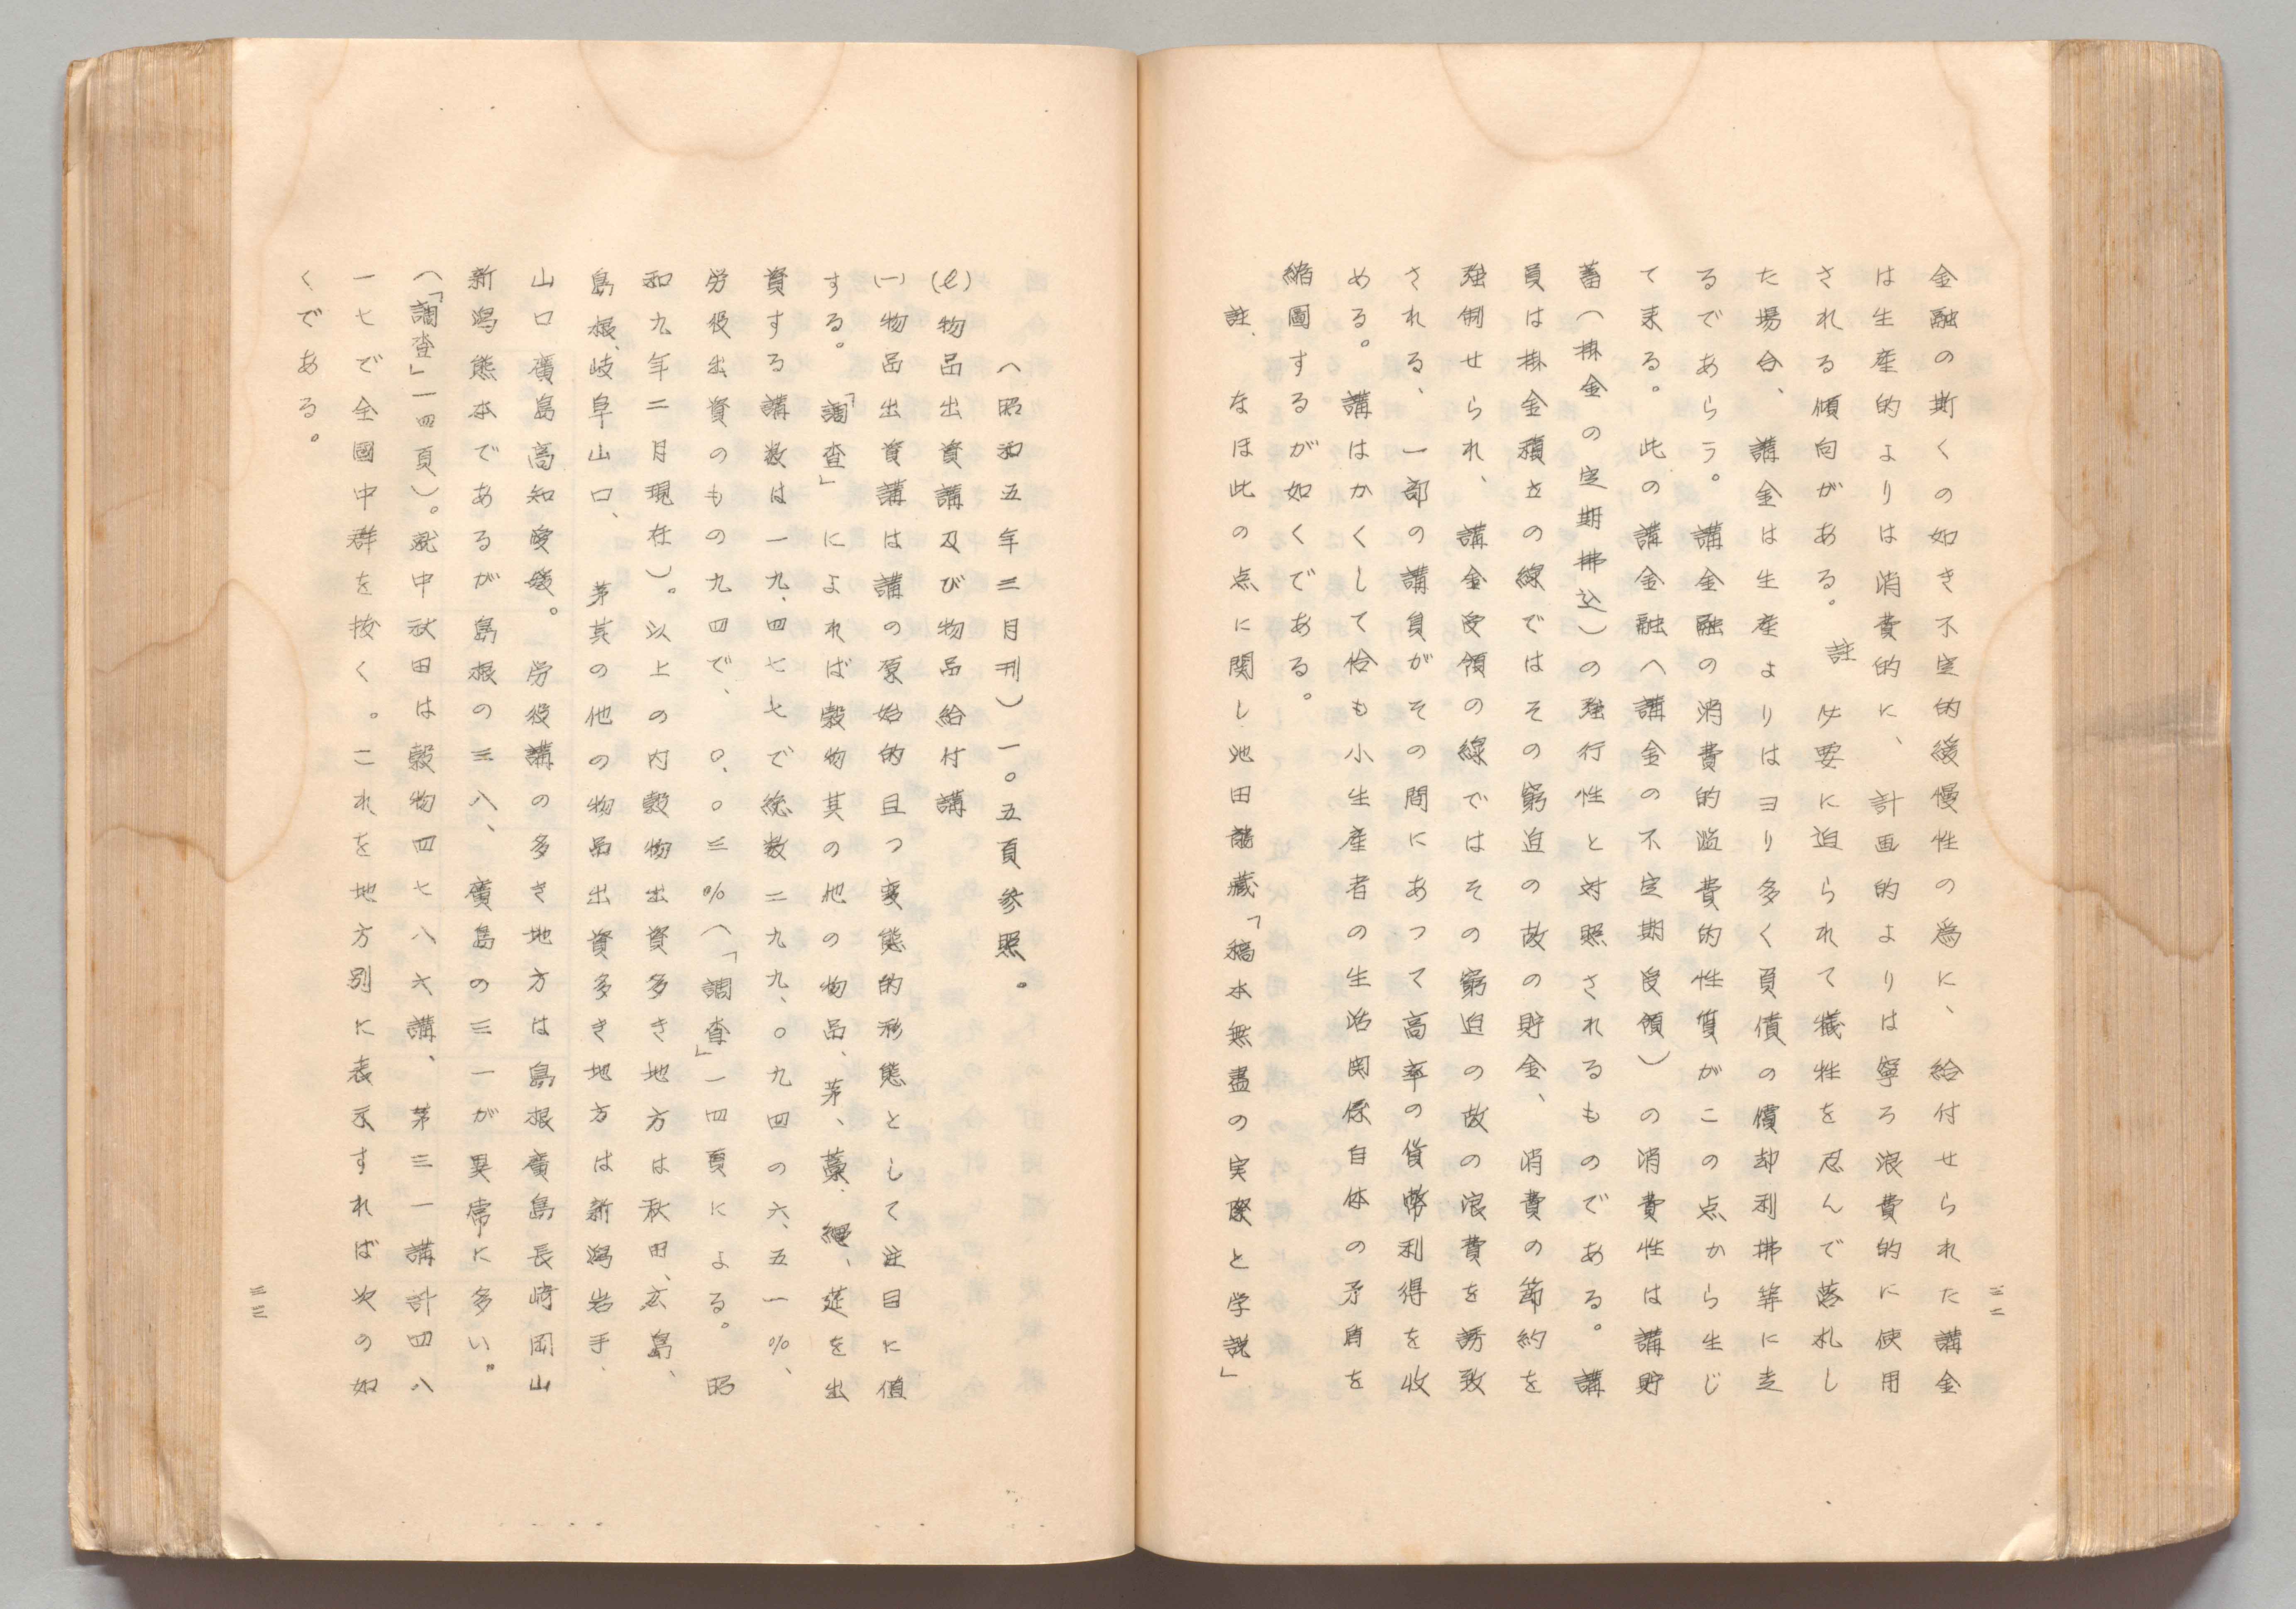 金融の斯くの如き不定的緩慢性の為に、給付せられた講金
は生産的よりは消費的に、計画的よりは寧ろ浪費的に使用
される傾向がある。註 必要に迫られて犠牲を忍んで落札し
た場合、講金は生産よりはヨリ多く負債の償却利拂等に走
るであらう。講金融の消費的濫費的性質がこの点から生じ
て来る。此の講金融へ講金の不定期受領)の消費性は講貯
蓄(掛金の定期拂込)の強行性と対照されるものである。講
員は掛金積立の線ではその窮迫の故の貯金、消費の節約を
強制せられ、講金受領の線ではその窮迫の故の浪費を誘致
される、一部の講員がその間にあつて高率の貨幣利得を收
める。講はかくして恰も小生産者の生活関係自体の矛盾を
縮圖するが如くである。
註、なほ此の点に関し池田龍藏「稿本無盡の実際と学説」
三二
(昭和五年三月刊)一〇五頁参照。
(ℓ)物品出資講及び物品給付講
(一)物品出資講は講の原始的且つ変態的形態として注目に値
する。「調査」によれば穀物其の他の物品、茅、藁、縄、莚を出
資する講数は一九、四七七で総数二九九、〇九四の六、五一%、
労役出資のもの九四で、〇、〇三%(「調査」一四頁による。昭
和九年二月現在)。以上の内穀物出資多き地方は秋田、広島、
島根、岐阜山口、茅其の他の物品出資多き地方は新潟岩手、
山口廣島高知愛媛。労役講の多き地方は島根廣島長崎岡山
新潟熊本であるが島根の三八、廣島の三一が異常に多い。
(「調査」一四頁)。就中秋田は穀物四七八六講、茅三一講計四八
一七で全國中群を抜く。これを地方別に表示すれば次の如
くである。
三三